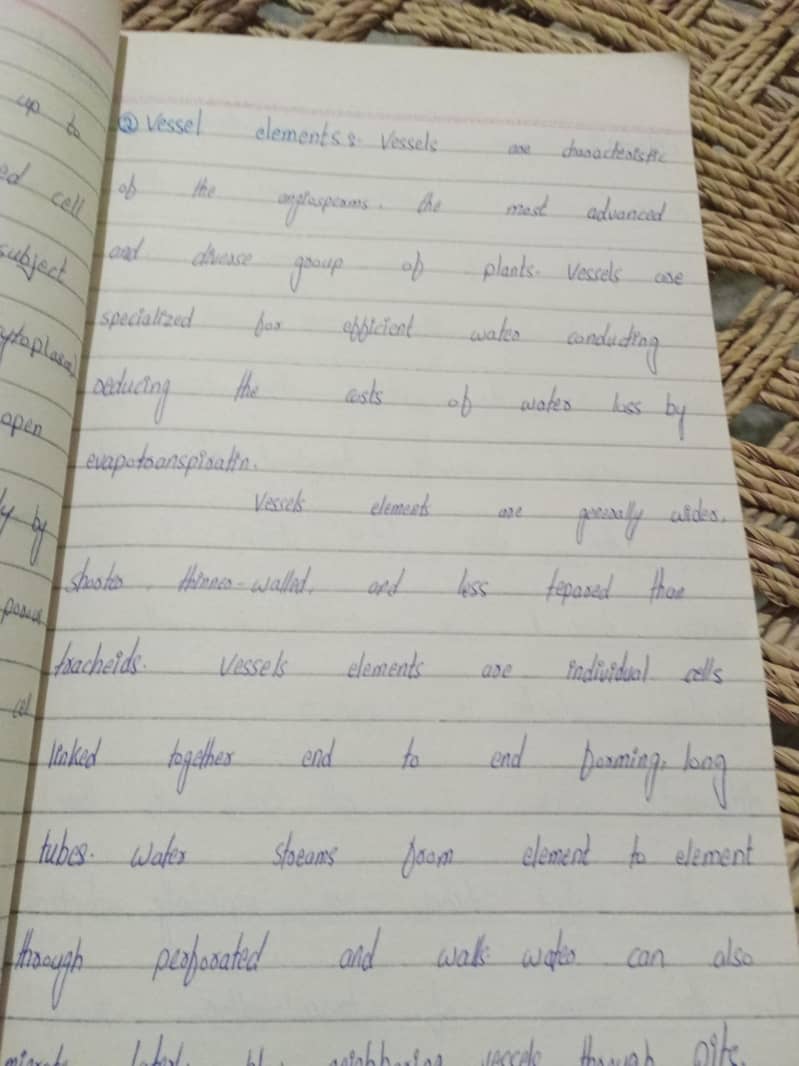 up to
ed cell
subject
open
y by
② Vessel elements : Vessels are characteristic
of the angiosperms, the most advanced
and diverse group of plants. Vessels are
specialized for efficient water conducting
reducing the costs of water loss by
evapotranspiratin.
Vessels elements are generally wider,
shorter, thinner-walled, and less tepared than
tracheids. Vessels elements are individual cells
linked together end to end forming, long
tubes. Water streams from element to element
through perforated and walls water can also
neighboring vessels through pits.